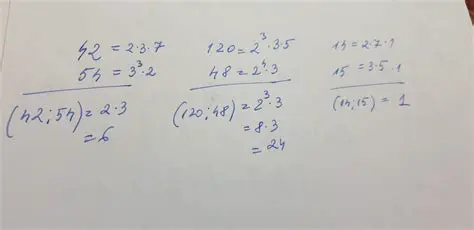 42 = 2·3·7
54 = 3³·2
(42;54) = 2·3
= 6
120 = 2³·3·5
48 = 2⁴·3
(120;48) = 2³·3
= 8·3
= 24
14 = 2·7·1
15 = 3·5·1
(14;15) = 1